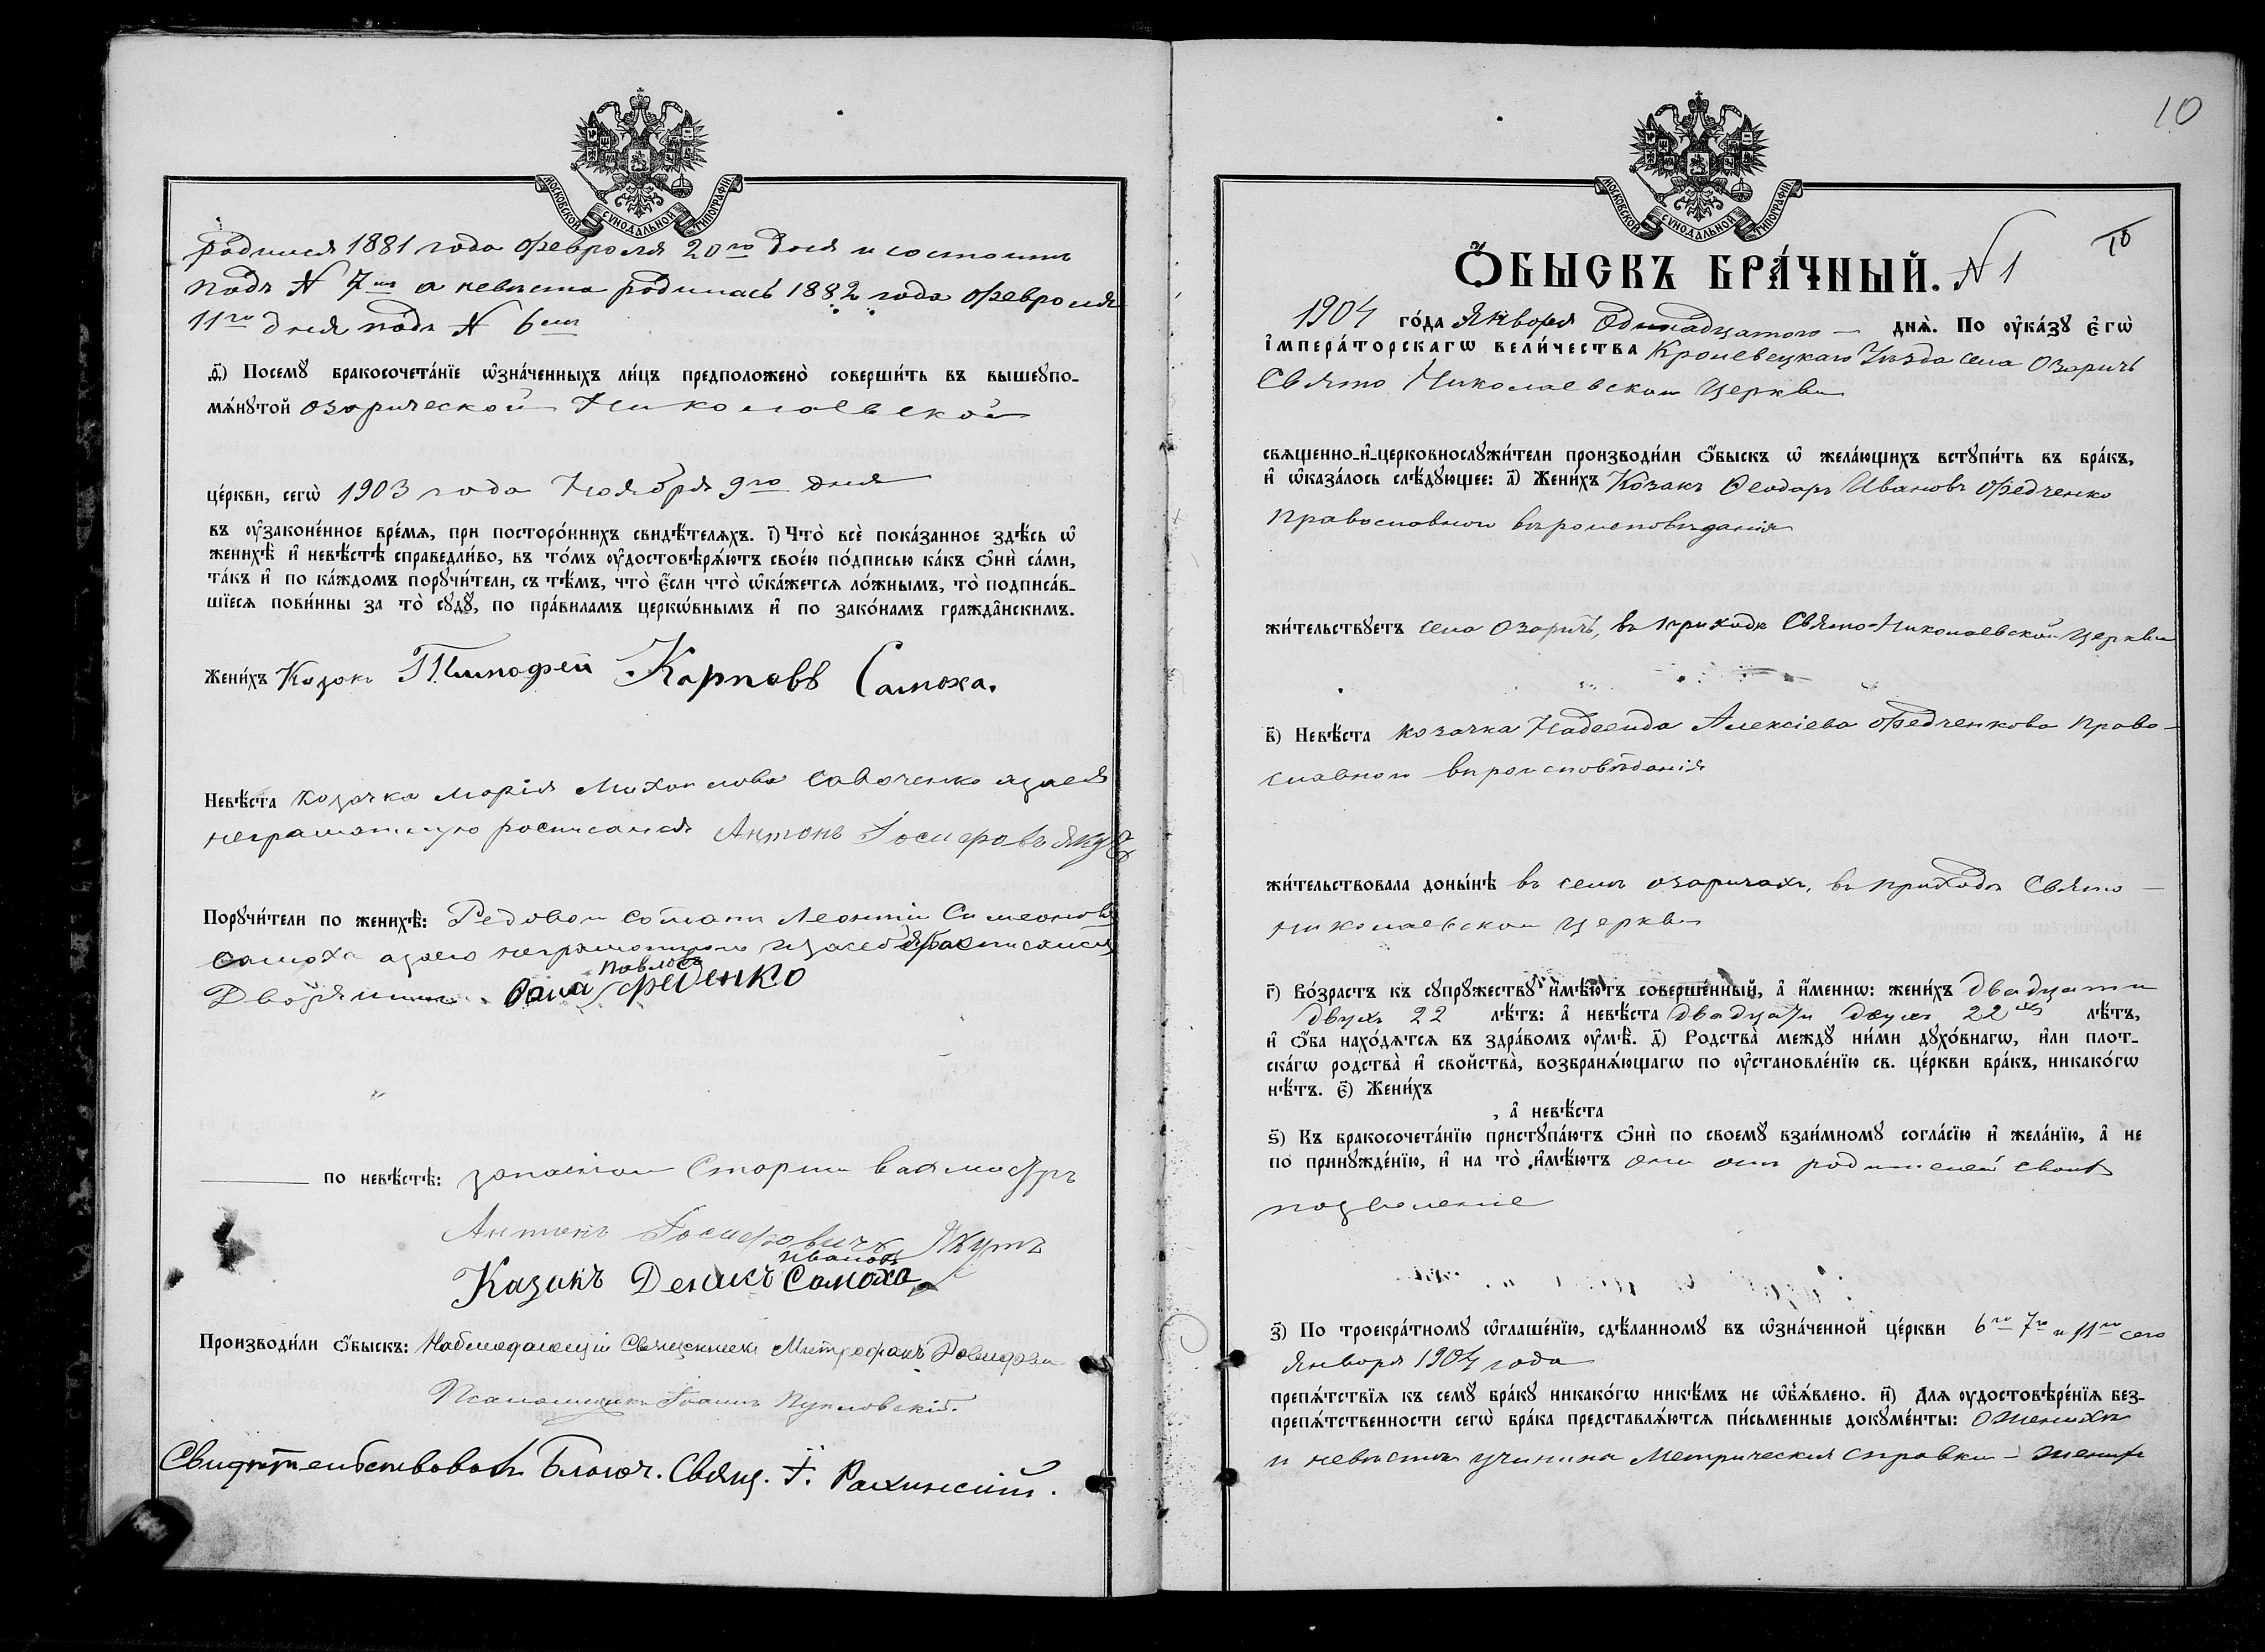 МОСКОВСКОЙ СѴНОДАЛЬНОЙ ТИПОГРАФІИ
родился 1881 года Февраля 20го дня и состоитъ
подъ N 7мъ а невеста родилась 1882 года Февраля
11го дня подъ N 6мъ
Ѳ҃) Посемꙋ бракосочета́нїе ѡ҆зна́ченныхъ ли́цъ предположено̀ соверши́ть въ вышеꙋпо-
мѧ́нꙋтой озарической Николаевской
це́ркви, сегѡ̀ 1903 года Ноября 9го дня
въ ᲂу҆законе́нное вре́мѧ, при посторо́ннихъ свидѣ́телѧхъ. і҃) Что̀ всѐ пока́занное здѣ́сь ѡ҆
женихѣ̀ и҆ невѣ́стѣ справедли́во, въ то́мъ ᲂу҆достовѣрѧ́ютъ свое́ю по́дписью ка́къ ѻ҆нѝ са́ми,
та́къ и҆ по ка́ждомъ порꙋчи́тели, съ тѣ́мъ, что̀ є҆́сли что̀ ѡ҆ка́жетсѧ ло́жнымъ, то̀ подписа́в-
шїесѧ пови́нны за то̀ сꙋдꙋ̀, по пра́виламъ церкѡ́внымъ и҆ по зако́намъ гражда̑нскимъ.
Жени́хъ Козакъ Тимофей Карповъ Самоха.
Невѣ́ста козачка Марія Михаилова Савоченко а заея
неграмотную росписался Антонъ Іосифовъ Якутъ
Порꙋчи́тели по женихѣ̀: Редовой солдатъ Леонтій Симеоновъ
самоха азаего неграмотного изасебя росписался
Дворянинъ Павловъ Феденко
по невѣ́стѣ: запасной Старши вахмистръ
Антонъ Іосифовичъ Якутъ
Казакъ Денисъ Ивановъ Самоха
Производи́ли ѻ҆́быскъ: Наблюдающій Священникъ Митрофанъ
Псаломщикъ Іоаннъ
Свидѣтельствовалъ Благоч. Свящ. І.
10
МОСКОВСКОЙ СѴНОДАЛЬНОЙ ТИПОГРАФІИ
10
Ѻ҆́БЫСКЪ БРА́ЧНЫЙ. N 1
1904 го́да Января Одинадцатого дня̀. По ᲂу҆ка́зꙋ є҆гѡ̀
і҆мпера́торскагѡ вели́чества Кролевецкаго Уѣзда села Озаричъ
Свято Николаевской Церкви
свѧщенно-и҆-церковнослꙋжи́тели производи́ли ѻ҆́быскъ ѡ҆ жела́ющихъ встꙋпи́ть въ бра́къ,
и҆ ѡ҆каза́лось слѣ́дꙋющее: а҃) Жени́хъ Козакъ Ѳеодоръ Ивановъ Федченко
православного вѣроисповѣданія
жи́тельствꙋетъ села Озаричъ, въ приходѣ Свято-Николаевской Церкви
в҃) Невѣ́ста козачка Надеенда Алексіева Федченкова право-
славного вѣроисповѣданія
жи́тельствовала доны́нѣ въ селѣ озаричахъ, въ приходѣ Свято-
николаевской церкви
г҃) Во́зрастъ къ сꙋпрꙋ́жествꙋ и҆мѣ́ютъ соверше́нный, а҆ и҆́меннѡ: жени́хъ двадцати
двухъ 22 лѣ́тъ: а҆ невѣ́ста двадцати двухъ 22хъ лѣ́тъ,
и҆ ѻ҆́ба нахо́дѧтсѧ въ здра́вомъ ᲂу҆мѣ̀. д҃) Родства̀ междꙋ ни́ми дꙋхо́внагѡ, и҆лѝ плот-
ска́гѡ родства̀ и҆ свойства̀, возбранѧ́ющагѡ по ᲂу҆становле́нїю св. це́ркви бра́къ, никако́гѡ
нѣ́тъ. є҃) Жени́хъ
, а҆ невѣ́ста
ѕ҃) Къ бракосочета́нїю пристꙋпа́ютъ ѻ҆нѝ по своемꙋ̀ взаи́мномꙋ согла́сїю и҆ жела́нїю, а҆ не
по принꙋжде́нїю, и҆ на то̀ и҆мѣ́ютъ они отъ родителей своихъ
позволеніе
з҃) По троекра́тномꙋ ѡ҆глаше́нїю, сдѣ́ланномꙋ въ ѡ҆зна́ченной це́ркви 6го 7го и 11го сего
Января 1904 года
препѧ́тствїѧ къ семꙋ̀ бра́кꙋ никако́гѡ никѣ́мъ не ѡ҆бꙗ́влено. и҃) Длѧ ᲂу҆достовѣре́нїѧ без-
препѧ́тственности сегѡ̀ бра́ка представлѧ́ютсѧ пи́сьменные докꙋме́нты: О женихѣ
и невѣстѣ учинина Метрическия справки - жених